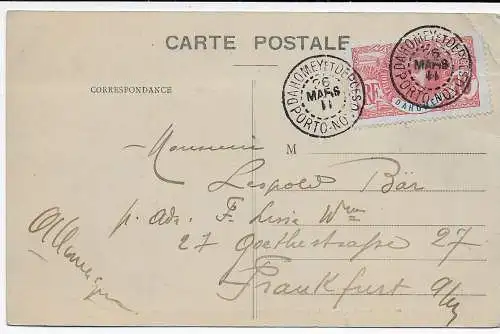 CARTE POSTALE
DAHOMEY ET DEPCES
26
MARS
11
PORTO-NOVO
DAHOMEY ET DEPCES
26
MARS
11
PORTO-NOVO
RF
DAHOMEY
CORRESPONDANCE
M
Monsieur
Leopold Bär
p. adr. F.
27 Goethestrasse 27
Frankfurt a/M
Allemagne